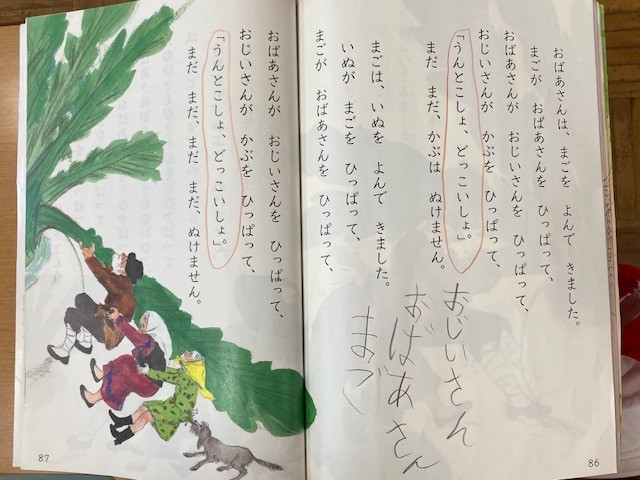 おばあさんは、まごを　よんで　きました。
まごが　おばあさんを　ひっぱって、
おばあさんが　おじいさんを　ひっぱって、
おじいさんが　かぶを　ひっぱって、
「うんとこしょ、どっこいしょ」。
まだ　まだ、かぶは　ぬけません。
おじいさん
おばあさん
まご
86
まごは、いぬを　よんで　きました。
いぬが　まごを　ひっぱって、
まごが　おばあさんを　ひっぱって、
おばあさんが　おじいさんを　ひっぱって、
おじいさんが　かぶを　ひっぱって、
「うんとこしょ、どっこいしょ」。
まだ　まだ、まだ　まだ、ぬけません。
87